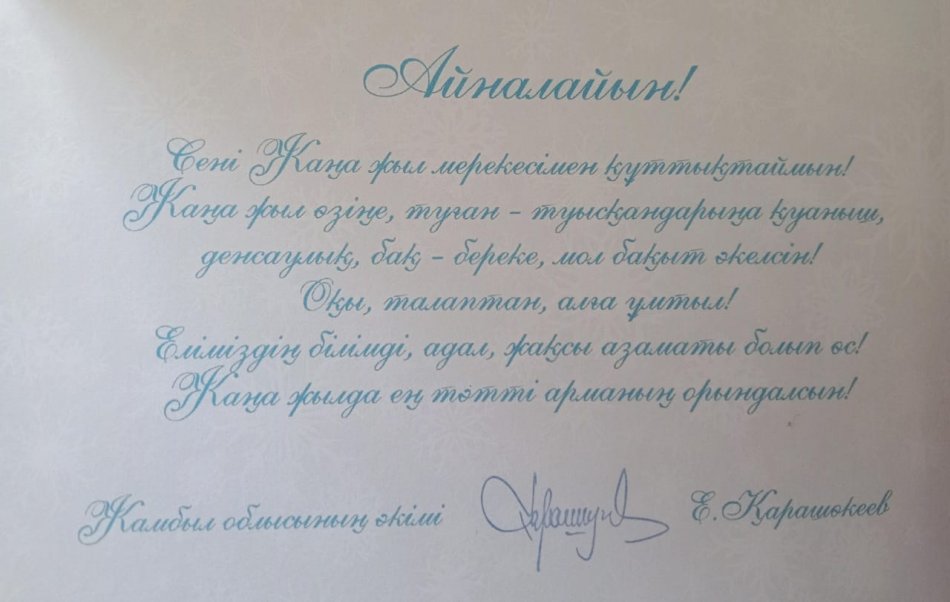 Айналайын!
Сені Жаңа жыл мерекесімен құттықтаймын!
Жаңа жыл өзіңе, туған - туысқандарыңа қуаныш,
денсаулық, бақ - береке, мол бақыт әкелсін!
Оқы, талаптан, алға ұмтыл!
Еліміздің білімді, адал, жақсы азаматы болып өс!
Жаңа жылда ең тәтті арманың орындалсын!
Жамбыл облысының әкімі Е. Қарашөкеев